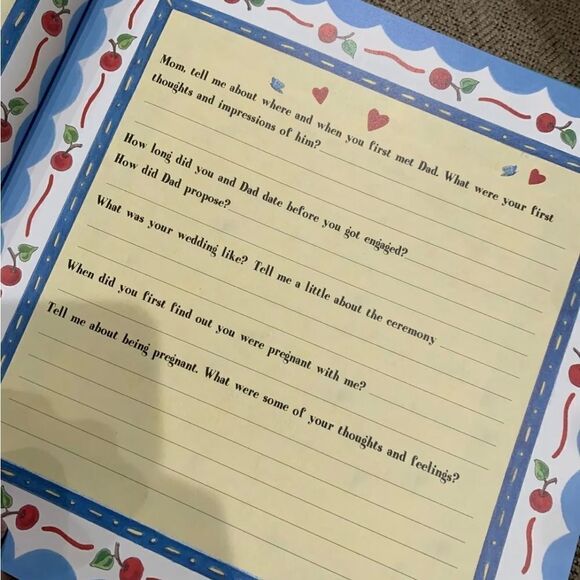 Mom, tell me about where and when you first met Dad. What were your first
thoughts and impressions of him?
How long did you and Dad date before you got engaged?
How did Dad propose?
What was your wedding like? Tell me a little about the ceremony
When did you first find out you were pregnant with me?
Tell me about being pregnant. What were some of your thoughts and feelings?